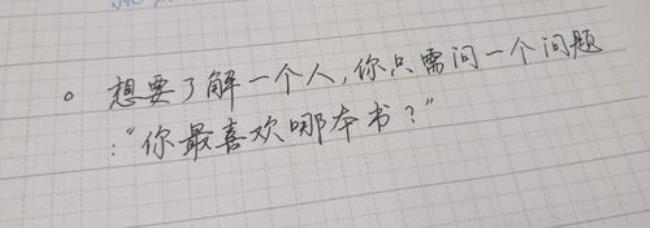 。想要了解一个人,你只需问一个问题
:“你最喜欢哪本书?”